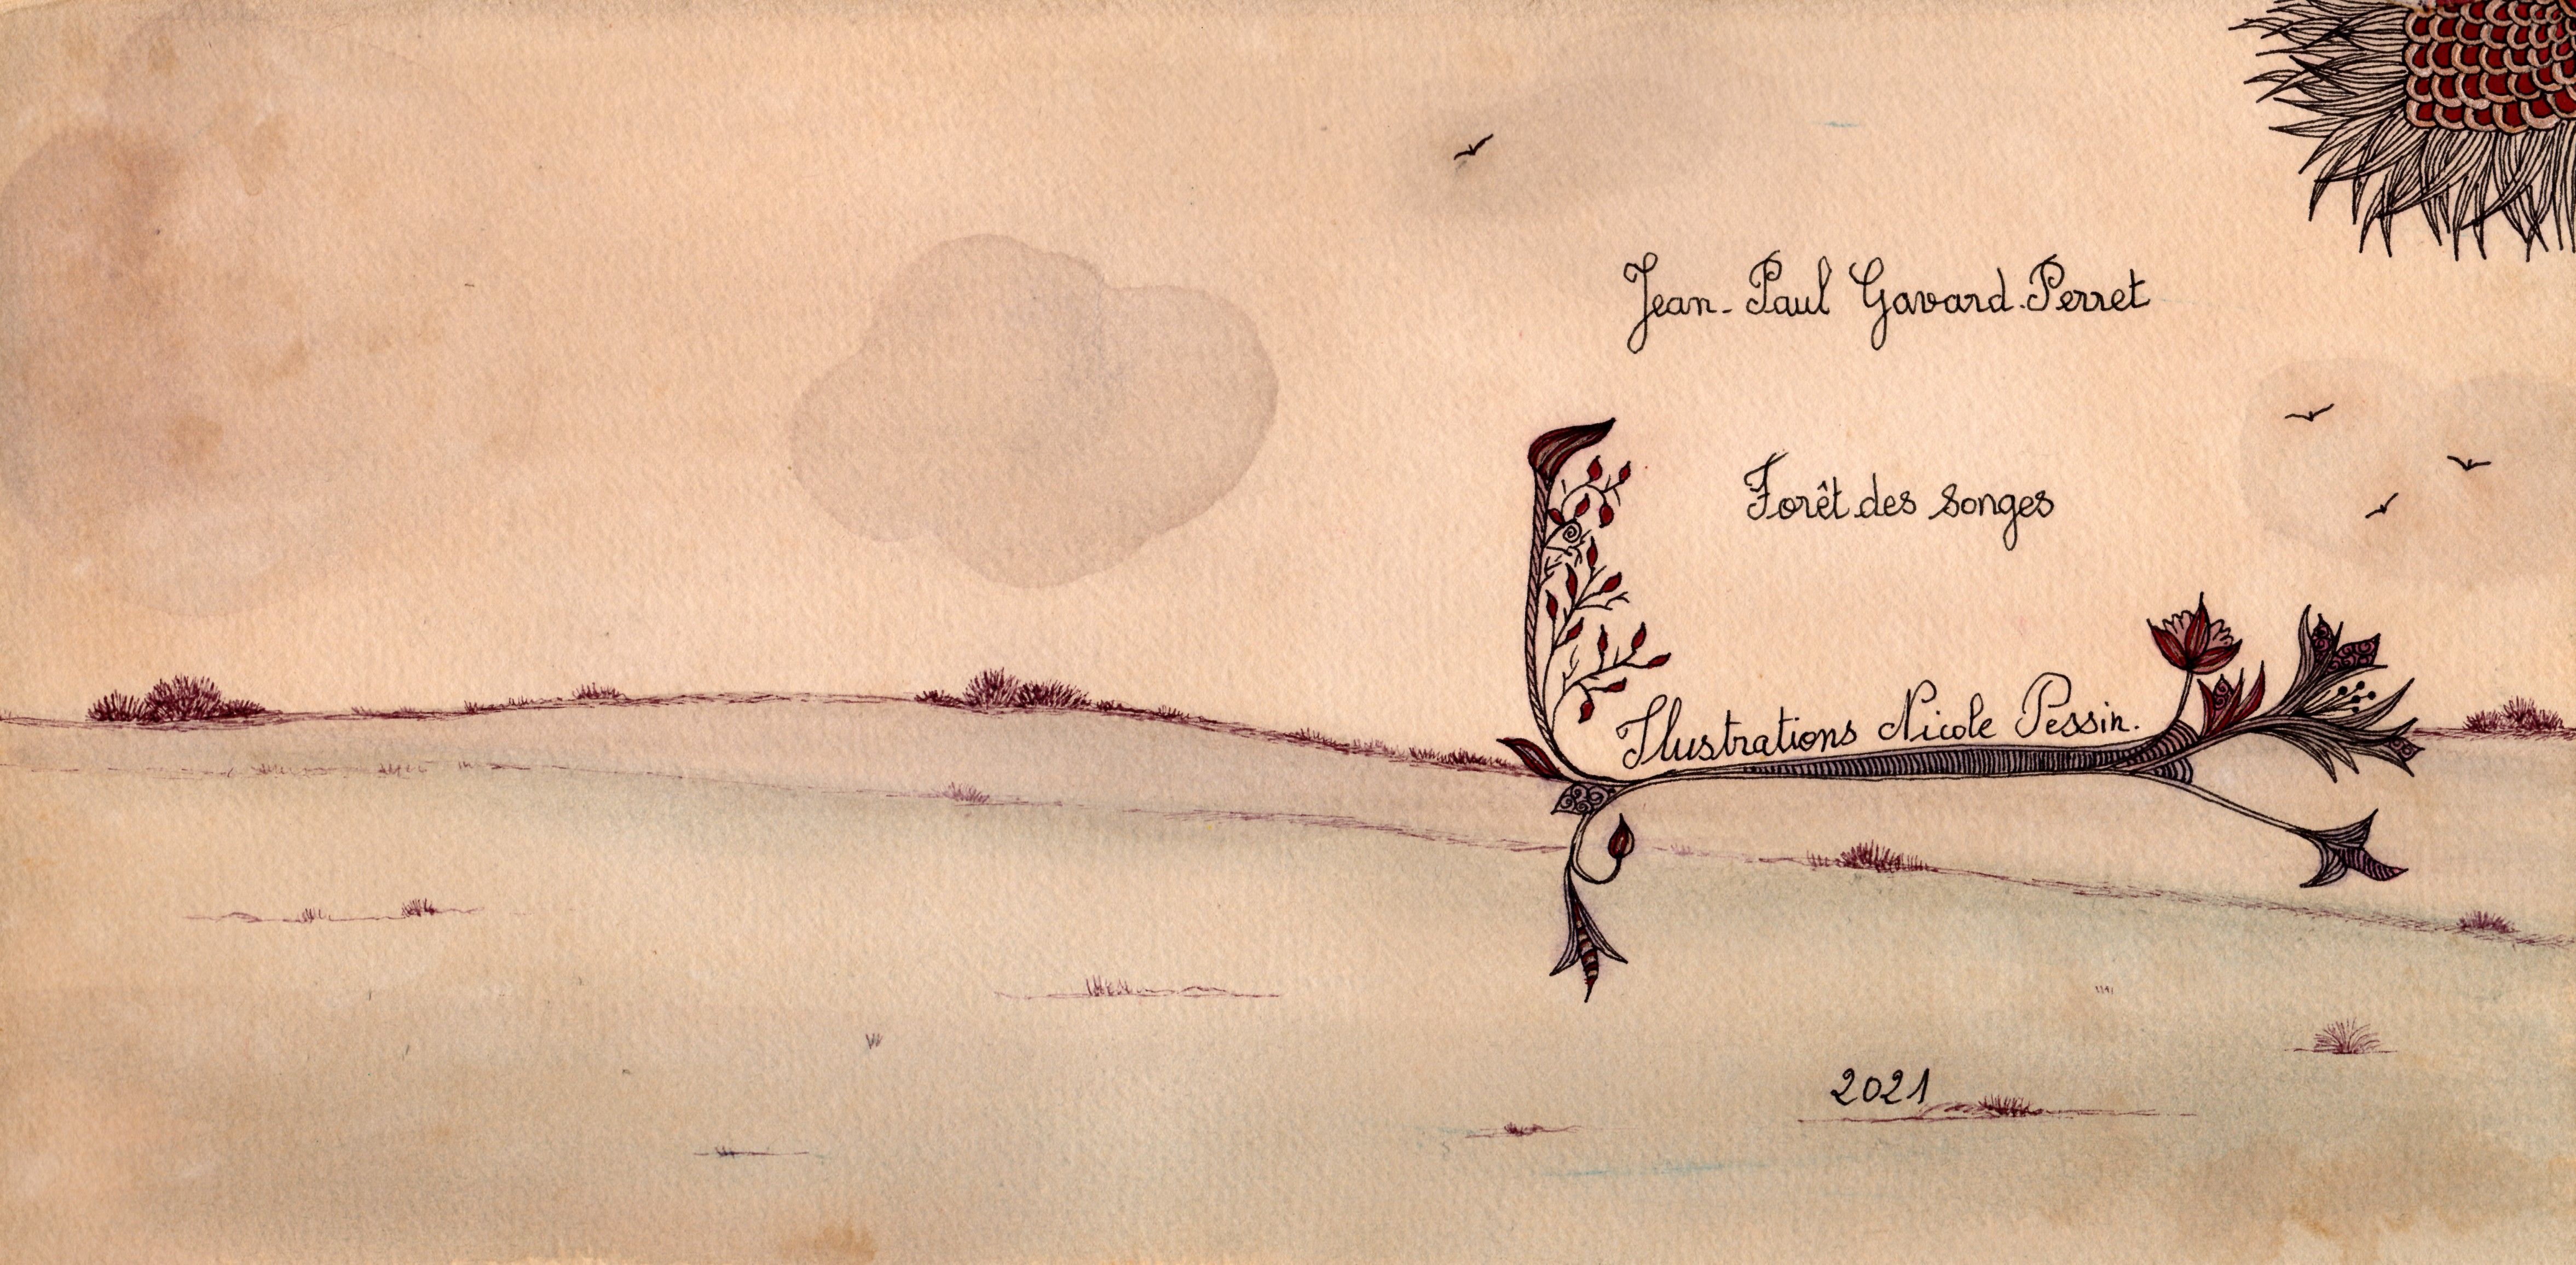 Jean-Paul Gavard-Perret
Forêt des songes
Ilustrations Nicole Pessin.
2021